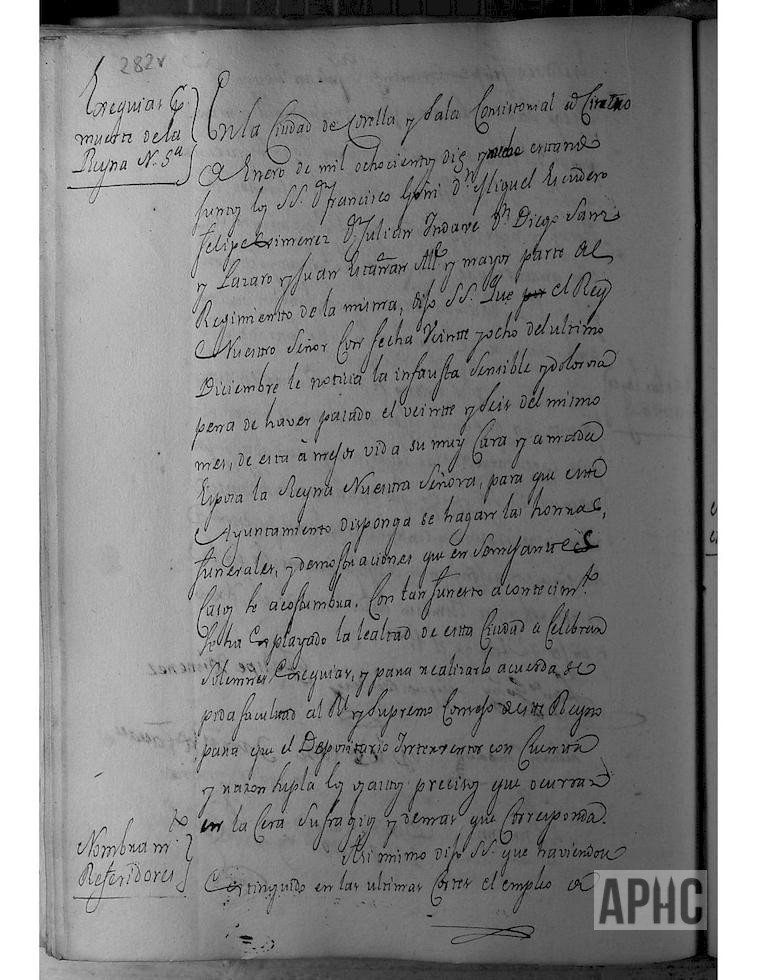 282v
Exequias
muerte de la
Reyna N. Sª
En la Ciudad de Corella y Sala Consistorial
Enero de mil ochocientos diez estando
juntos los SS. Dn Francisco Goñi Dn Miguel Escudero
Felipe Ximenez Dn Julian Dn Diego Sanz
y Lazaro y Juan Alle y mayor parte del
Regimiento de la misma, dijo SS. Que el Rey
Nuestro Señor Con fecha Veinte y ocho del ultimo
Diciembre le noticia la infausta Sensible y dolorosa
pena de haver pasado el veinte y seis del mismo
mes, de esta à mejor vida su muy Cara y amada
Esposa la Reyna Nuestra Señora, para que este
Ayuntamiento disponga se hagan las honras,
funerales, y demostraciones que en semejantes
Casos se acostumbra. Con tan funesto acontecimto
se ha Explayado la lealtad de esta Ciudad a Celebrar
Solemnes Exequias, y para realizarlo acuerda se
pida facultad al Rl y Supremo Consejo de este Reyno
para que el Depositario Interventor con Cuenta
y razon supla los gastos precisos que ocurran
en la Cera Sufragios y demas que Corresponda.
Nombram.to
Referidores
Asi mismo dijo SS. que haviendose
Extinguido en las ultimas Cortes el empleo de
APHC